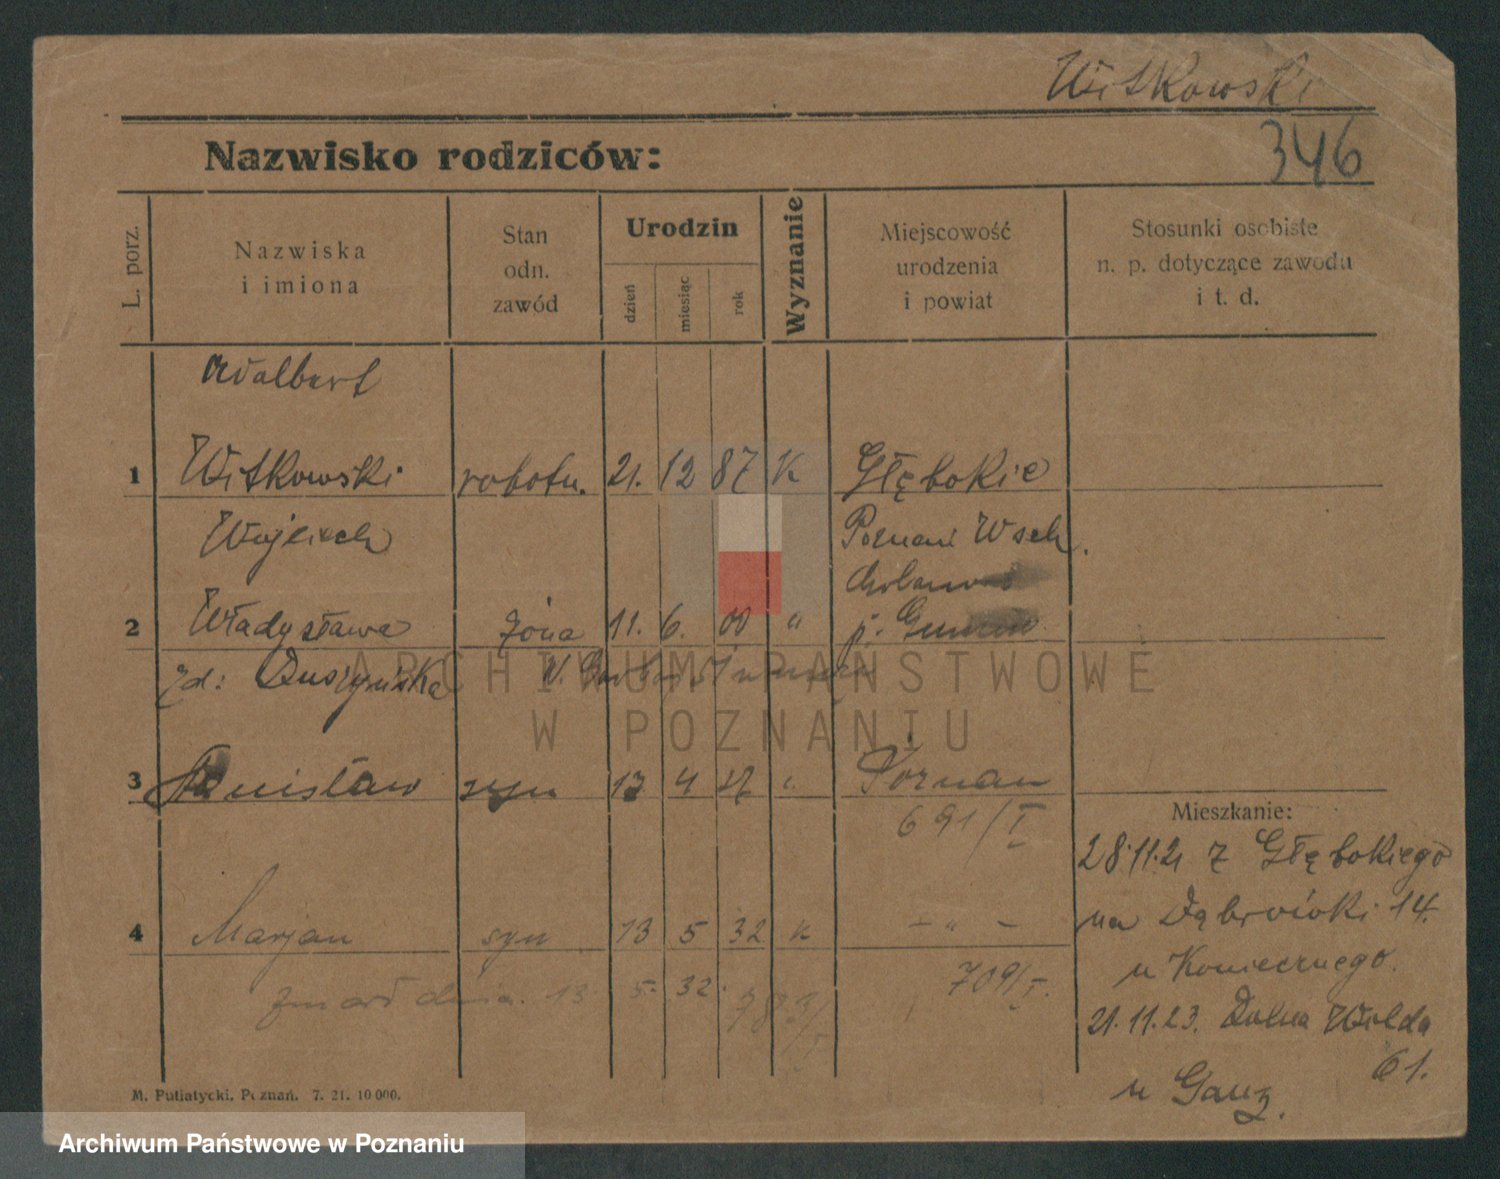 Witkowski
346
Nazwisko rodziców:
L. porz.
Nazwiska
i imiona
Stan
odn.
zawód
Urodzin
dzień
miesiąc
rok
Wyznanie
Miejscowość
urodzenia
i powiat
Stosunki osobiste
n. p. dotyczące zawodu
i t. d.
Adalbert
1 Witkowski robotn. 21. 12 87 K Głębokie
Wojciech Poznań Wsch.
2 Władysława żona 11. 6. 00 "
zd: Duszyńska
ARCHIWUM PAŃSTWOWE
W POZNANIU
3 Stanisław syn 4 Poznan
691/I
4 Marjan syn 13 5 32 K - " -
zmarł dnia 13 5. 32. 709/I.
783/I
Mieszkanie:
28.11.21 z Głębokiego
na Dąbrówki 14.
u Koniecznego.
21.11.23. Dolna Wilda
61.
u Ganz.
M. Putiatycki, Poznań. 7. 21. 10 000.
Archiwum Państwowe w Poznaniu